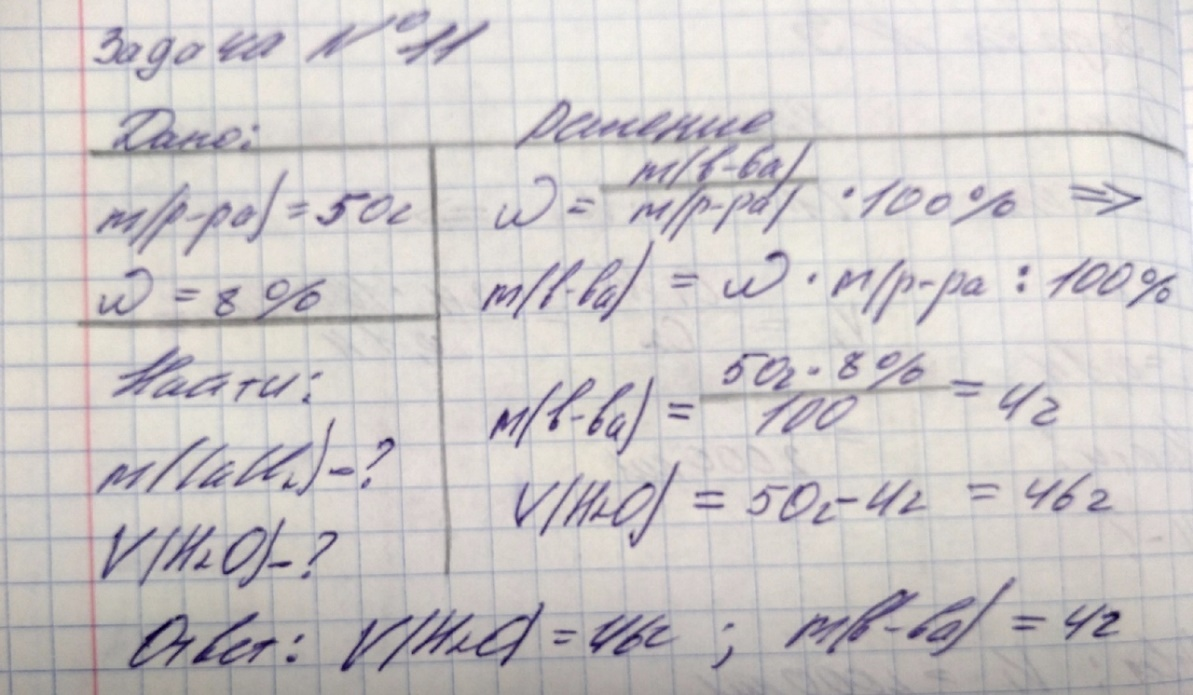 Задача №11
Дано:
Решение
m(р-ра) = 50г
ω = 8%
Найти:
m(CaCl₂)-?
V(H₂O)-?
ω = m(в-ва) / m(р-ра) · 100% =>
m(в-ва) = ω · m(р-ра : 100%
m(в-ва) = 50г · 8% / 100 = 4г
V(H₂O) = 50г - 4г = 46г
Ответ: V(H₂O) = 46г ; m(в-ва) = 4г